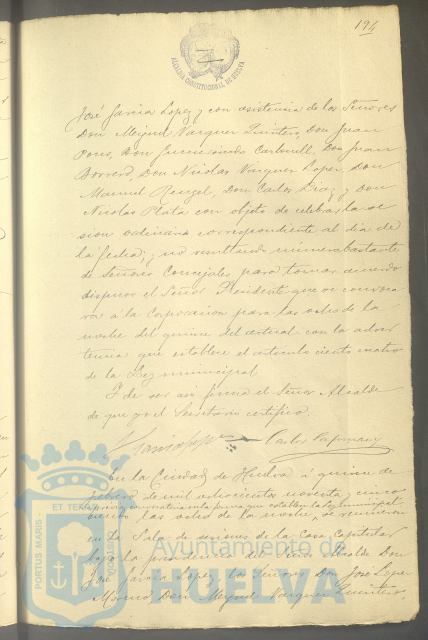 194
ALCALDIA CONSTITUCIONAL DE HUELVA
José García Lopez y con asistencia de los Señores
Don Miguel Vazquez Quintero, Don Juan
Pons, Don Gumersindo Carbonell, Don Juan
Borrero, Don Nicolas Vazquez Lopez, Don
Manuel Rangel, Don Carlos Diaz y Don
Nicolas Plata con objeto de celebrar la se
sion ordinaria correspondiente al dia de
la fecha; y no resultando número bastante
de Señores Concejales para tomar acuerdo
dispuso el Señor Presidente que se convoca
ra á la Corporacion para las ocho de la
noche del quince del actual con la adver
tencia que establece el artículo ciento cuatro
de la Ley municipal.
Y de ser asi firma el Señor Alcalde
de que yo el Secretario certifico.
En la Ciudad de Huelva á quince de
Febrero de mil ochocientos noventa y cinco
previa convocatoria en la forma que establece la ley municipal
siendo las ocho de la noche, se reunieron
en la Sala de sesiones de la Casa Capitular
bajo la presidencia del Señor Alcalde Don
José García Lopez los Señores Don José Lopez
Moreno, Don Miguel Vazquez Quintero,
PORTUS MARIS
ET TERRAE
CUSTODIA
Ayuntamiento de
HUELVA